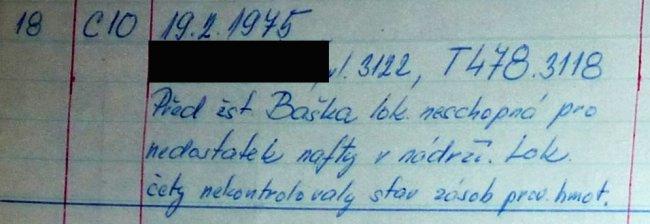 18 C10 19.2.1975
vl. 3122, T478.3118
Před žst Baška lok. neschopná pro
nedostatek nafty v nádrži. Lok.
čety nekontrolovaly stav zásob prov. hmot.